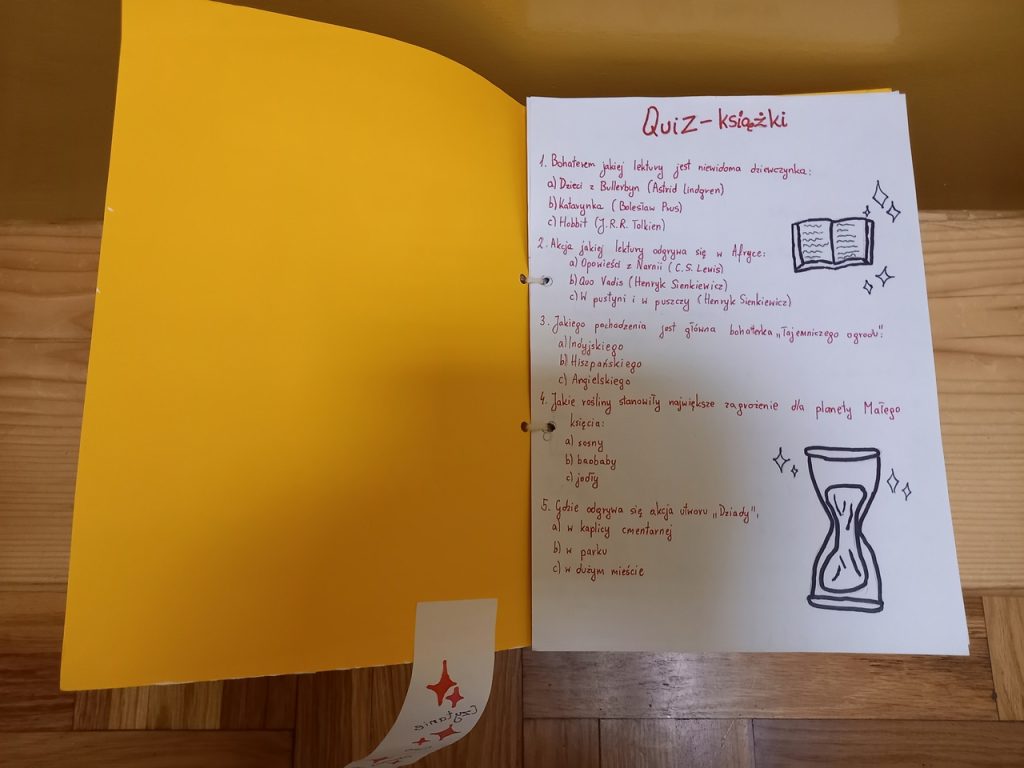 Quiz-książki
1. Bohaterem jakiej lektury jest niewidoma dziewczynka:
a) Dzieci z Bullerbyn (Astrid Lindgren)
b) Katarynka (Bolesław Prus)
c) Hobbit (J.R.R. Tolkien)
2. Akcja jakiej lektury odgrywa się w Afryce:
a) Opowieści z Narnii (C.S. Lewis)
b) Quo Vadis (Henryk Sienkiewicz)
c) W pustyni i w puszczy (Henryk Sienkiewicz)
3. Jakiego pochodzenia jest główna bohaterka „Tajemniczego ogrodu":
a) Indyjskiego
b) Hiszpańskiego
c) Angielskiego
4. Jakie rośliny stanowiły największe zagrożenie dla planety Małego
księcia:
a) sosny
b) baobaby
c) jodły
5. Gdzie odgrywa się akcja utworu „Dziady",
a) w kaplicy cmentarnej
b) w parku
c) w dużym mieście
Czytanie